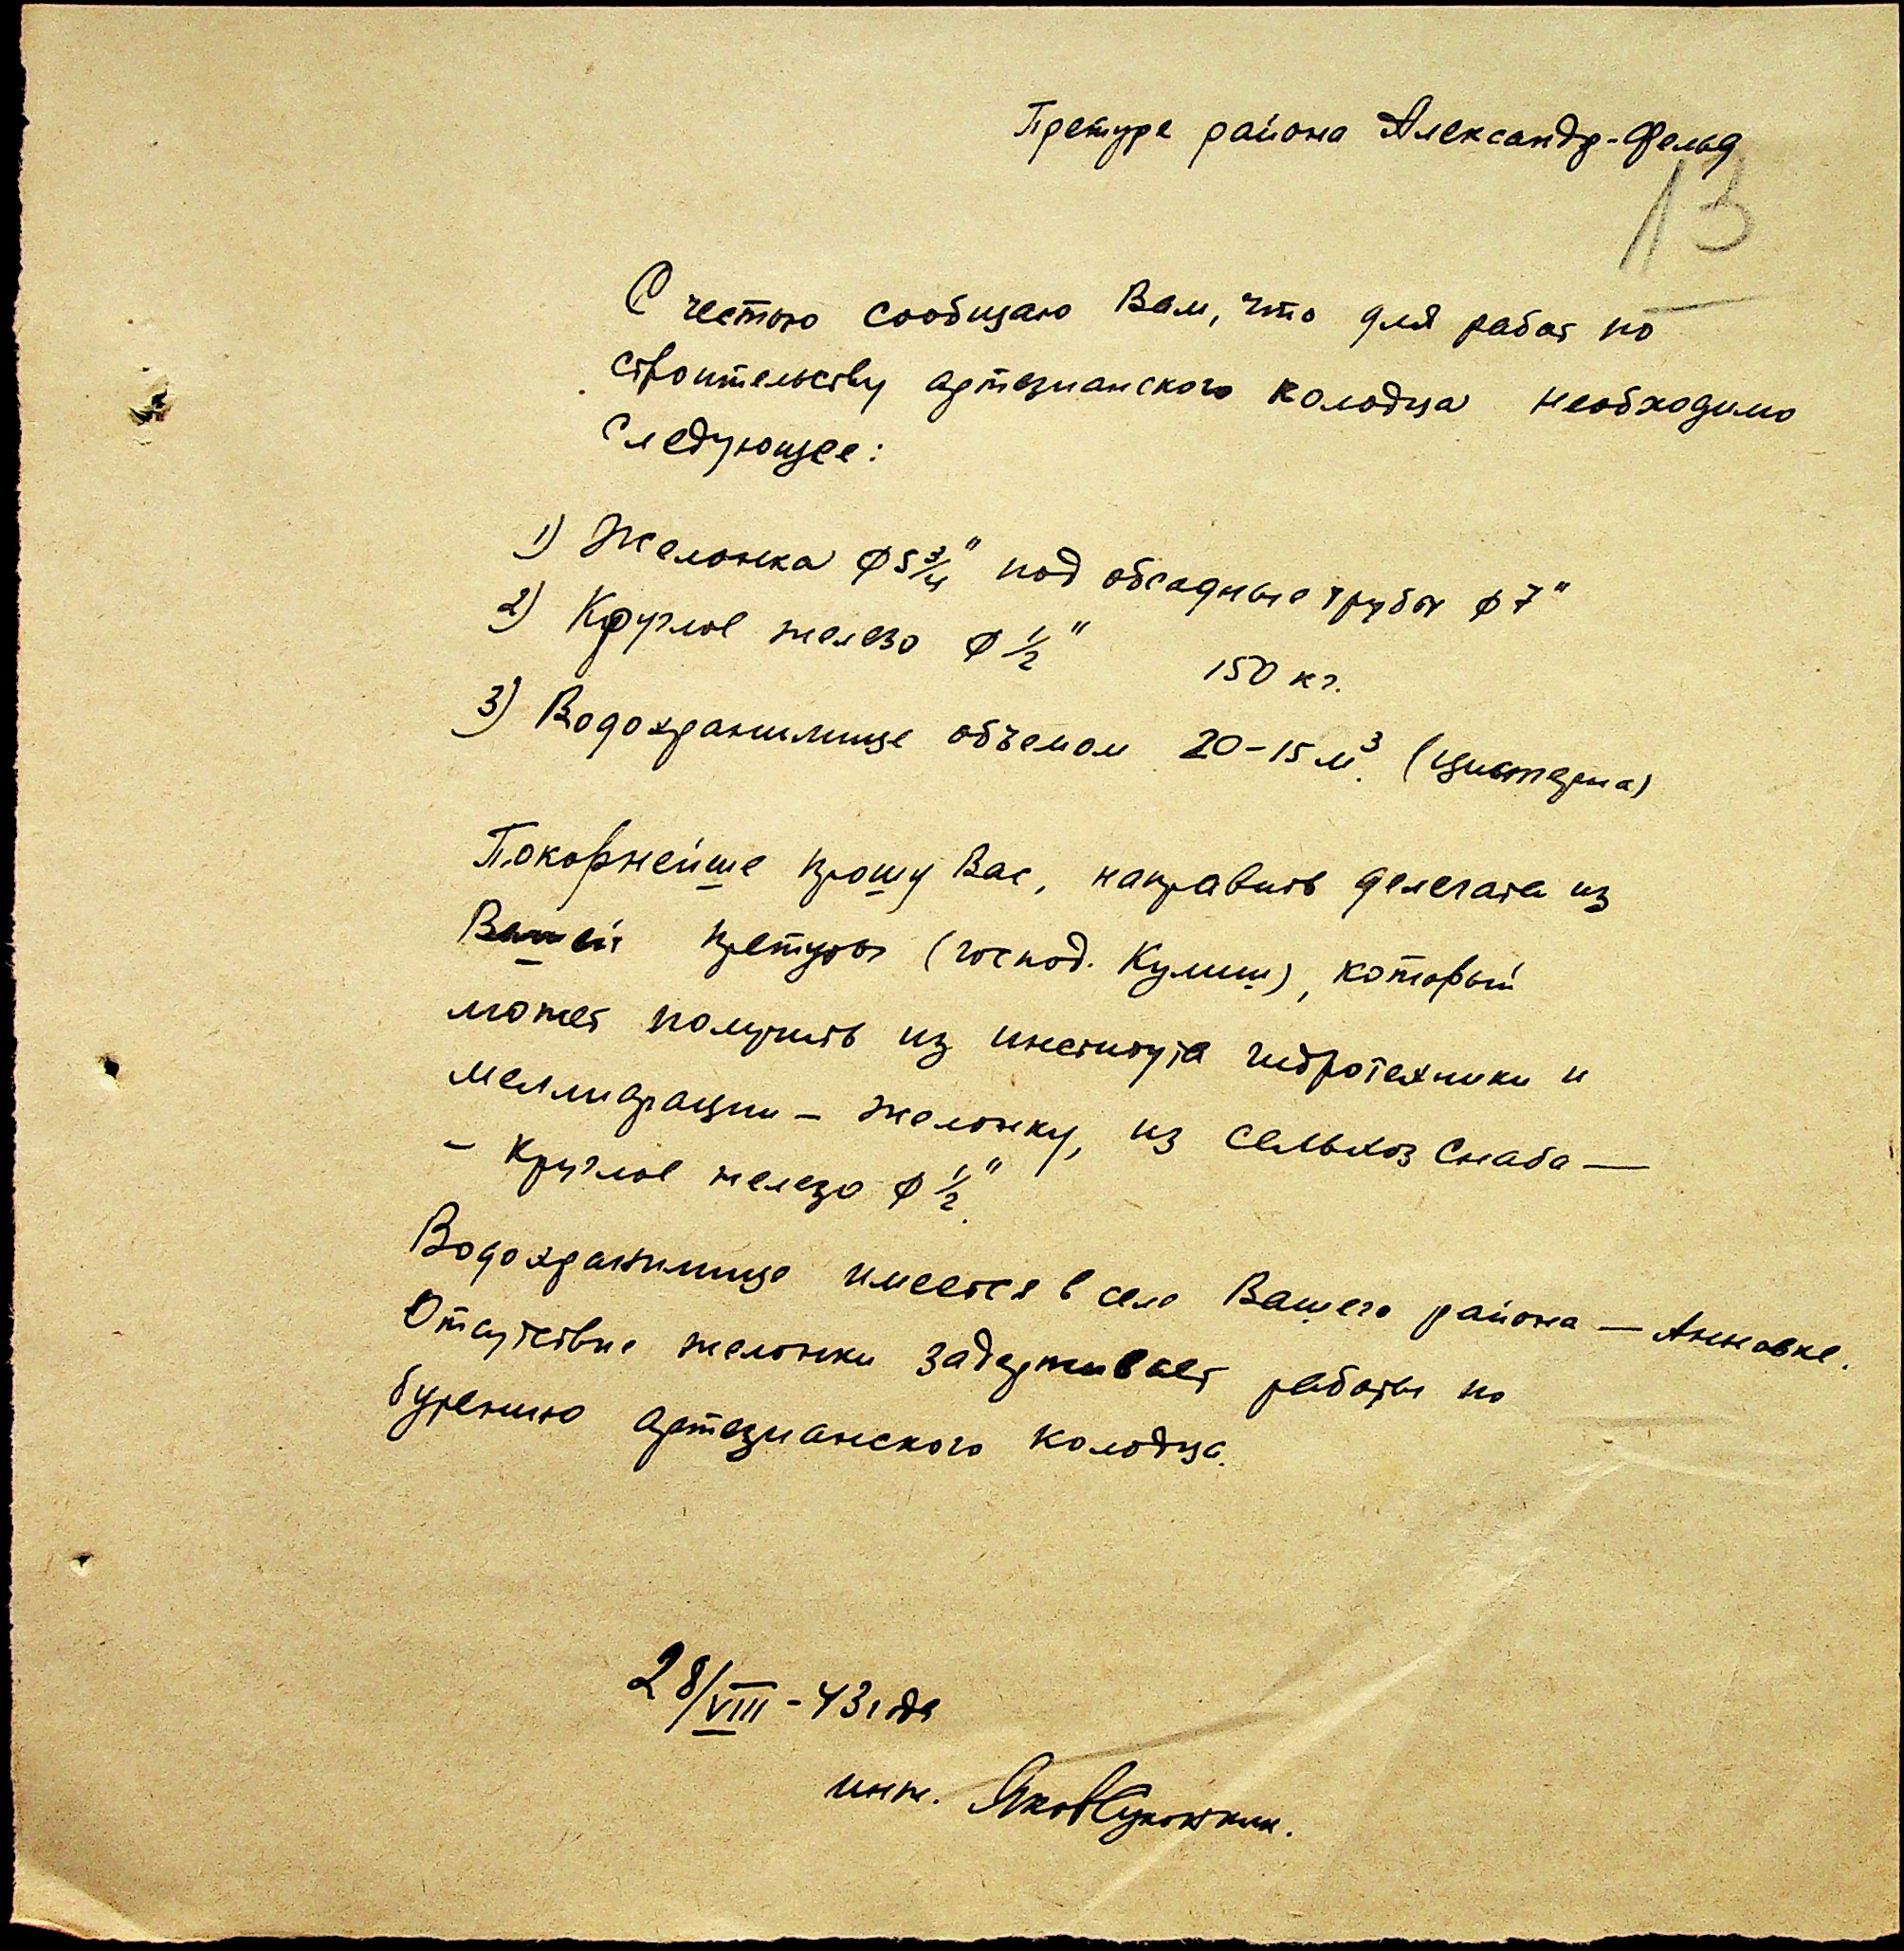 Претуре района Александр-Фельд
13
С честью сообщаю Вам, что для работ по
строительству артезианского колодца необходимо
следующее:
1) Желонка ф 5 3/4" под обсадные трубы ф 7"
2) Круглое железо ф 1/2" 150 кг.
3) Водохранилище объемом 20-15 м³. (цистерна)
Покорнейше прошу Вас, направить делегата из
Вашей претуры (господ. Кулиш), который
может получить из института гидротехники и
меллиорации – желонку, из Сельхоз Снаба —
– Круглое железо ф 1/2".
Водохранилище имеется в селе Вашего района — Анновке.
Отсутствие желонки задерживает работы по
бурению артезианского колодца.
28/VIII - 43 года
инж.